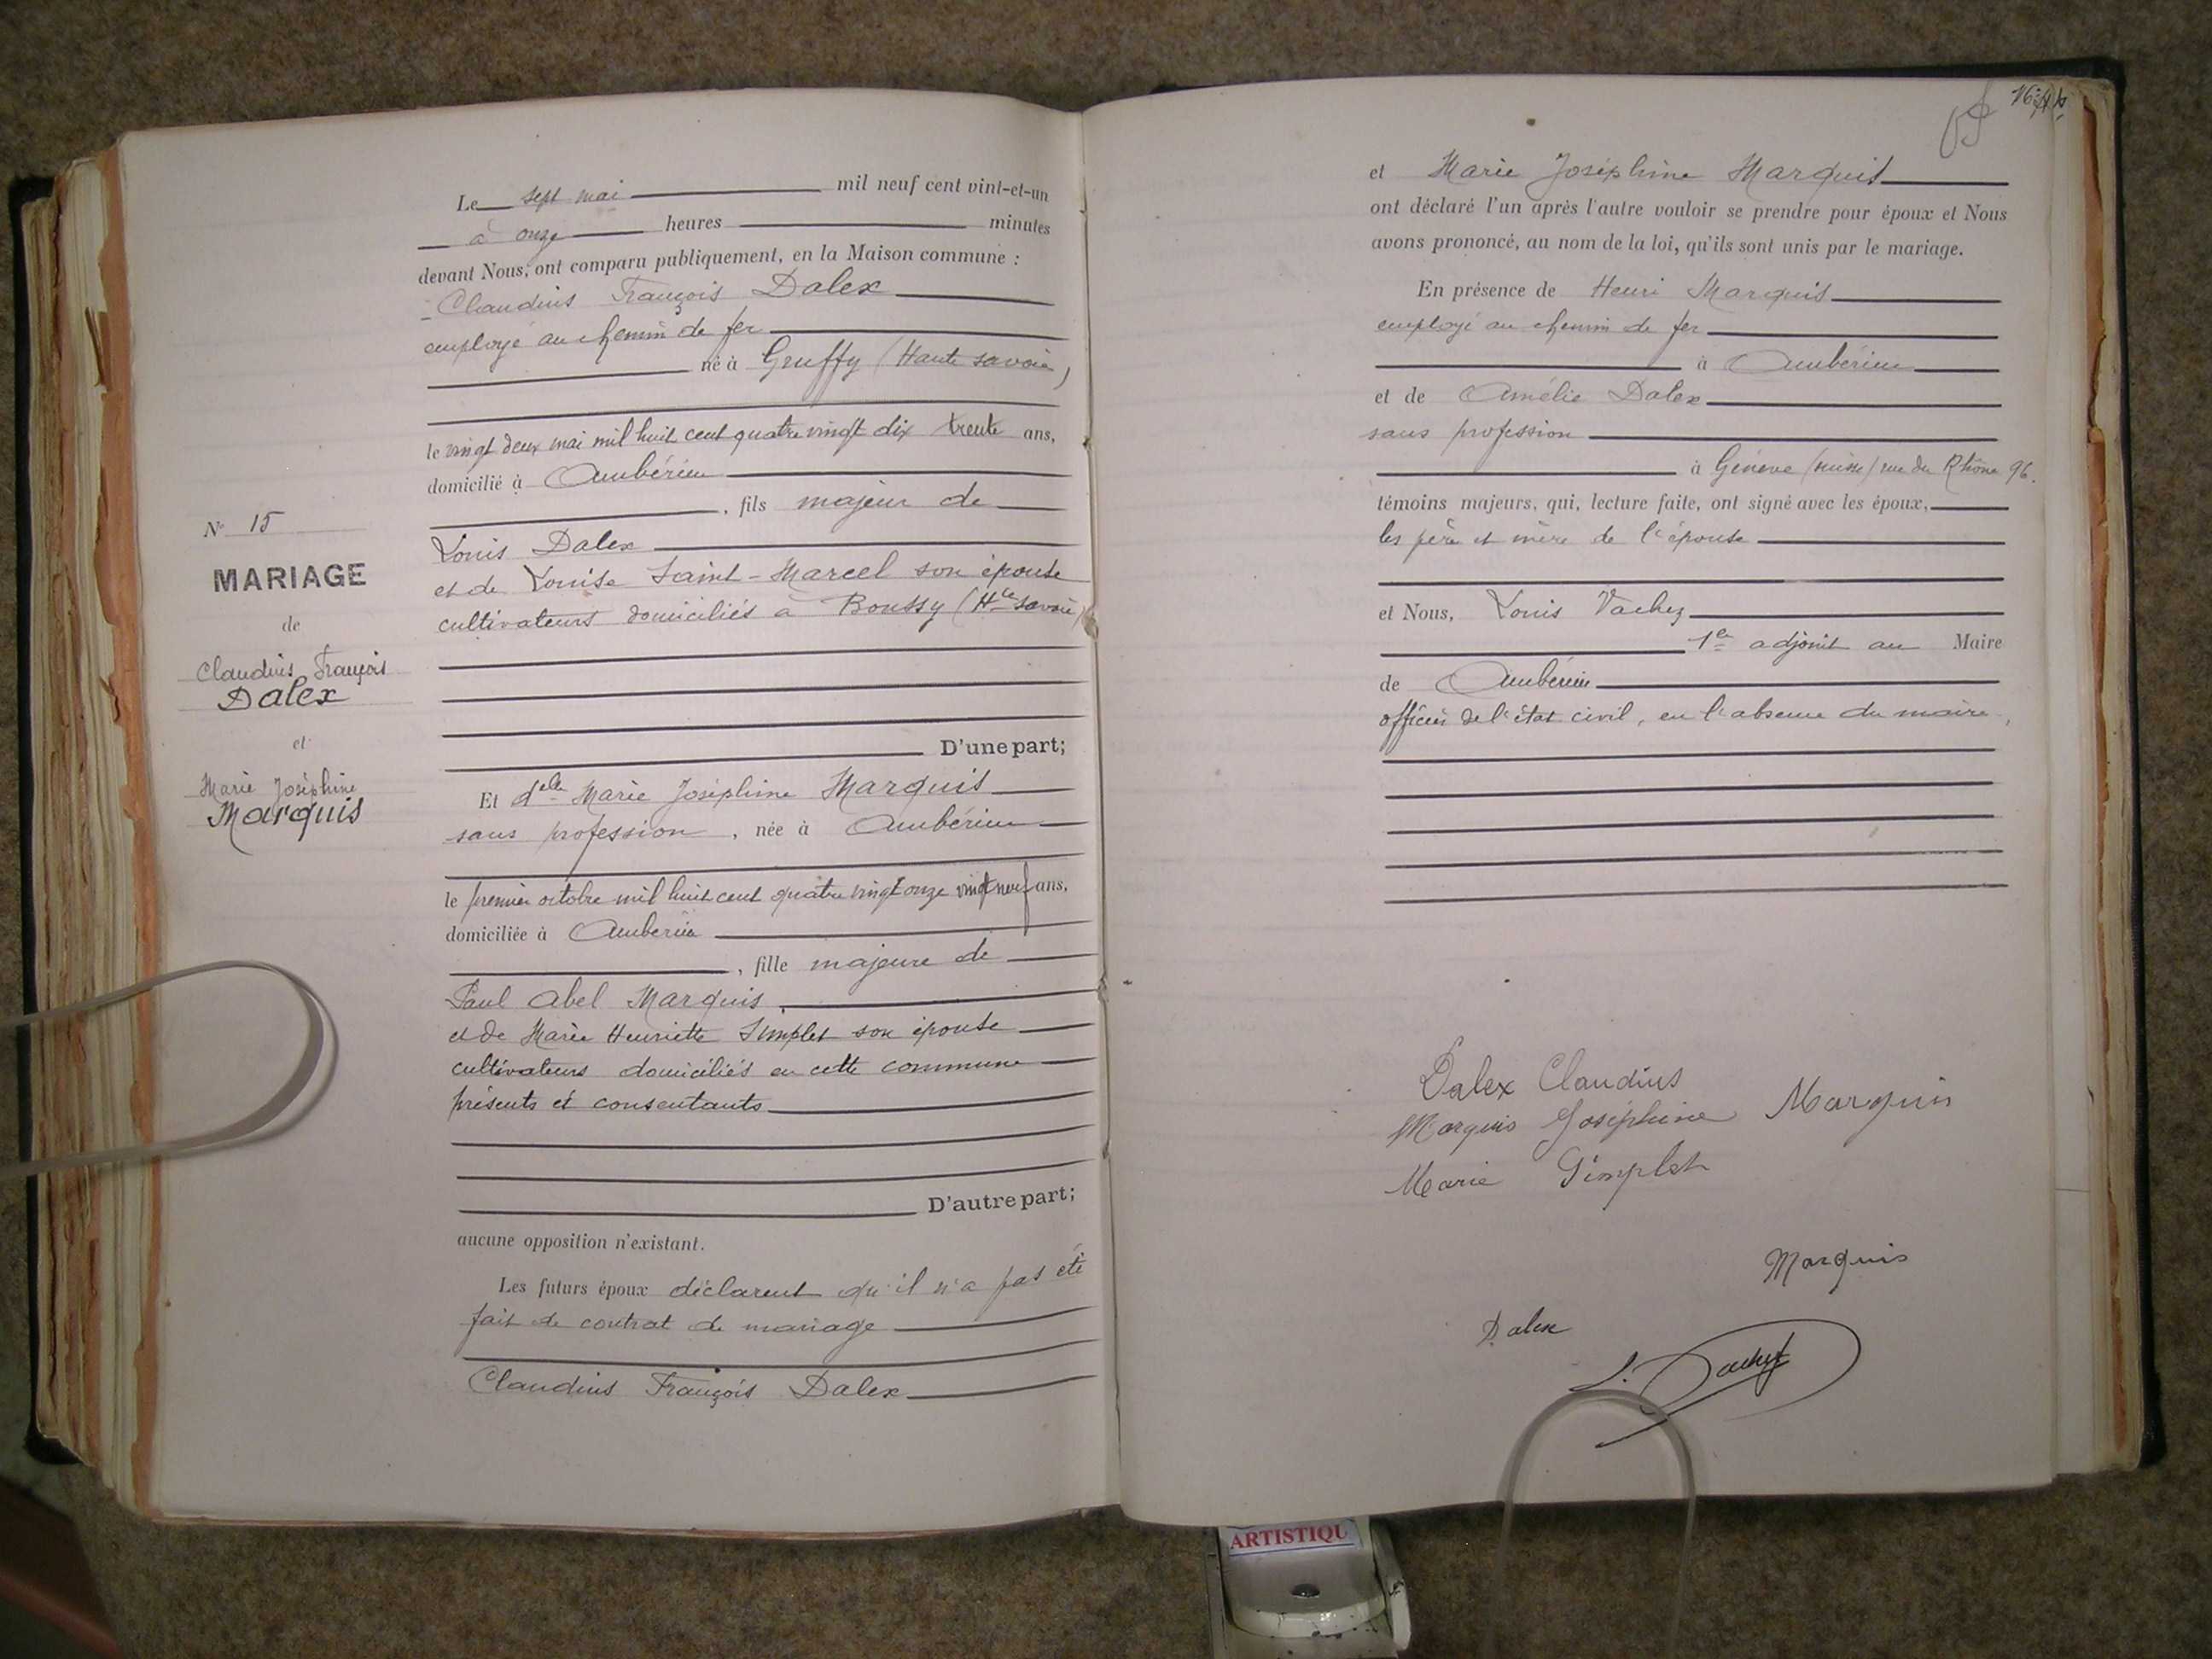 N° 15
MARIAGE
de
Claudius François
Dalex
et
Marie Joséphine
Marquis
Le sept mai mil neuf cent vint-et-un
à onze heures minutes
devant Nous, ont comparu publiquement, en la Maison commune :
Claudius François Dalex
employé au chemin de fer
né à Gruffy (Haute savoie)
le vingt deux mai mil huit cent quatre vingt dix trente ans,
domicilié à Ambérieu
, fils majeur de
Louis Dalex
et de Louise Saint-Marcel son épouse
cultivateurs domiciliés à Boussy (Hte savoie)
D'une part;
Et delle Marie Joséphine Marquis
sans profession, née à Ambérieu
le premier octobre mil huit cent quatre vingt onze vingt neuf ans,
domiciliée à Ambérieu
, fille majeure de
Paul Abel Marquis
et de Marie Henriette Simplet son épouse
cultivateurs domiciliés en cette commune
présents et consentants
D'autre part;
aucune opposition n'existant.
Les futurs époux déclarent qu'il n'a pas été
fait de contrat de mariage
Claudius François Dalex
et Marie Joséphine Marquis
ont déclaré l'un après l'autre vouloir se prendre pour époux et Nous
avons prononcé, au nom de la loi, qu'ils sont unis par le mariage.
En présence de Henri Marquis
employé au chemin de fer
à Ambérieu
et de Amélie Dalex
sans profession
à Génève (suisse) rue du Rhône 96.
témoins majeurs, qui, lecture faite, ont signé avec les époux,
les père et mère de l'épouse
et Nous, Louis Vachez
1er adjoint au Maire
de Ambérieu
officier de l'état civil, en l'absence du maire,
Dalex Claudius
Marquis Joséphine Marquis
Marie Simplet
Marquis
Dalex
L. Vachez
ARTISTIQU